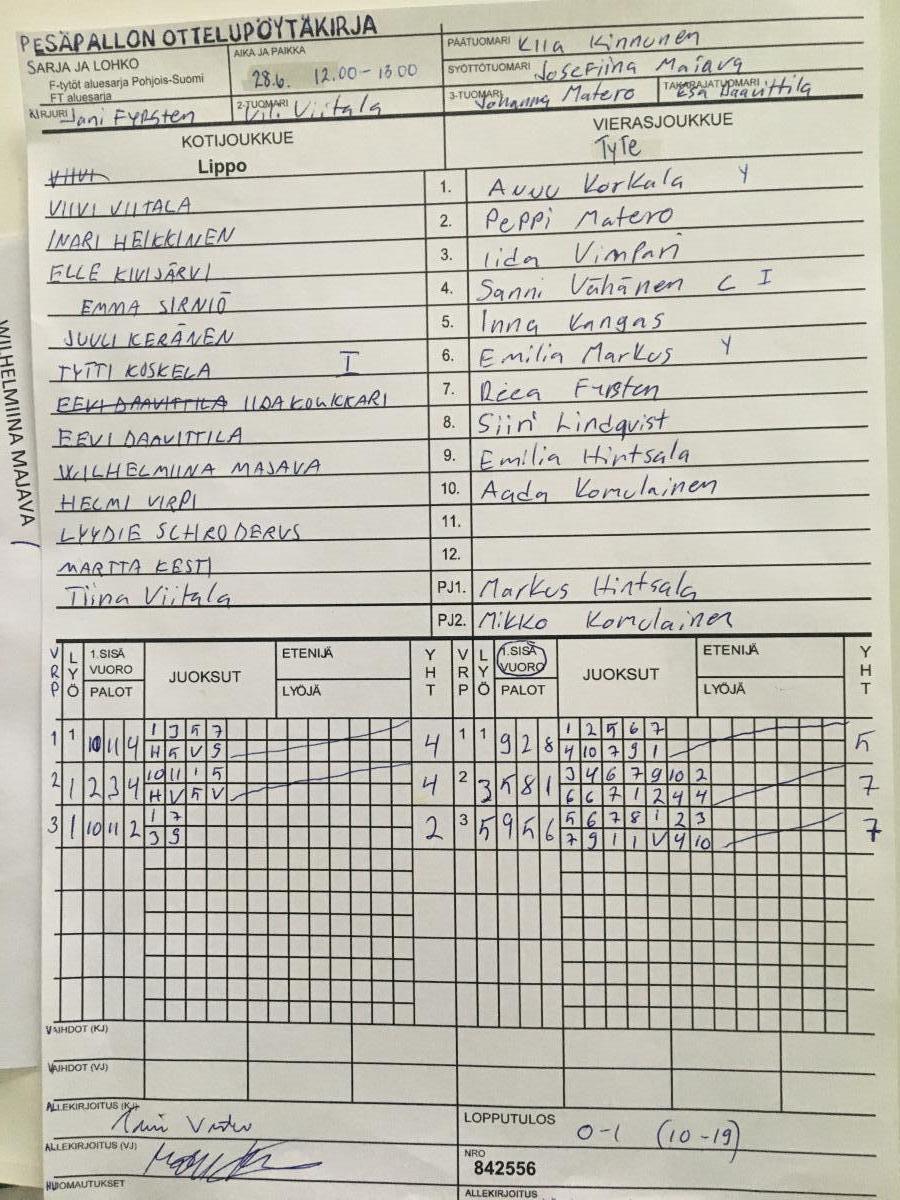 PESÄPALLON OTTELUPÖYTÄKIRJA
SARJA JA LOHKO
F-tytöt aluesarja Pohjois-Suomi
FT aluesarja
AIKA JA PAIKKA
28.6. 12.00-13.00
PÄÄTUOMARI Kiia Kinnunen
SYÖTTÖTUOMARI Josefiina Majava
KIRJURI Jani Fyrsten
2-TUOMARI Viitala
3-TUOMARI Johanna Matero
TAKARAJATUOMARI Esa Daavittila
KOTIJOUKKUE
VIERASJOUKKUE
VIIVI Lippo
TyTe
VIIVI VIITALA 1. Anni Korkala Y
INARI HEIKKINEN 2. Peppi Matero
ELLE KIVIJÄRVI 3. Iida Vimpari
EMMA SIRNIÖ 4. Sanni Vähänen C I
JUULI KERÄNEN 5. Inna Kangas
TYTTI KOSKELA I 6. Emilia Markus Y
EEVI DAAVITTILA IIDA KOUKKARI 7. Reea Fyrsten
EEVI DAAVITTILA 8. Siiri Lindqvist
WILHELMIINA MAJAVA 9. Emilia Hintsala
HELMI VIRPI 10. Aada Komulainen
LYYDIE SCHRODERUS 11.
MARTTA KESTI 12.
Tiina Viitala PJ1. Markus Hintsala
PJ2. Mikko Komulainen
WILHELMIINA MAJAVA /
VRP LYÖ 1.SISÄ VUORO PALOT JUOKSUT ETENIJÄ LYÖJÄ YHT VRP LYÖ 1.SISÄ VUORO PALOT JUOKSUT ETENIJÄ LYÖJÄ YHT
1 1 10 11 4 1 3 5 7 4 1 1 9 2 8 1 2 5 6 7 5
H 5 V 9 4 10 7 9 1
2 1 2 3 4 10 11 1 5 4 2 3 5 8 1 3 4 6 7 9 10 2 7
H V 5 V 6 6 7 1 2 4 4
3 1 10 11 2 1 7 2 3 5 9 5 6 5 6 7 8 1 2 3 7
3 9 7 9 1 1 V 4 10
VAIHDOT (KJ)
VAIHDOT (VJ)
ALLEKIRJOITUS (KJ)
LOPPUTULOS 0-1 (10-19)
ALLEKIRJOITUS (VJ)
NRO
842556
HUOMAUTUKSET
ALLEKIRJOITUS